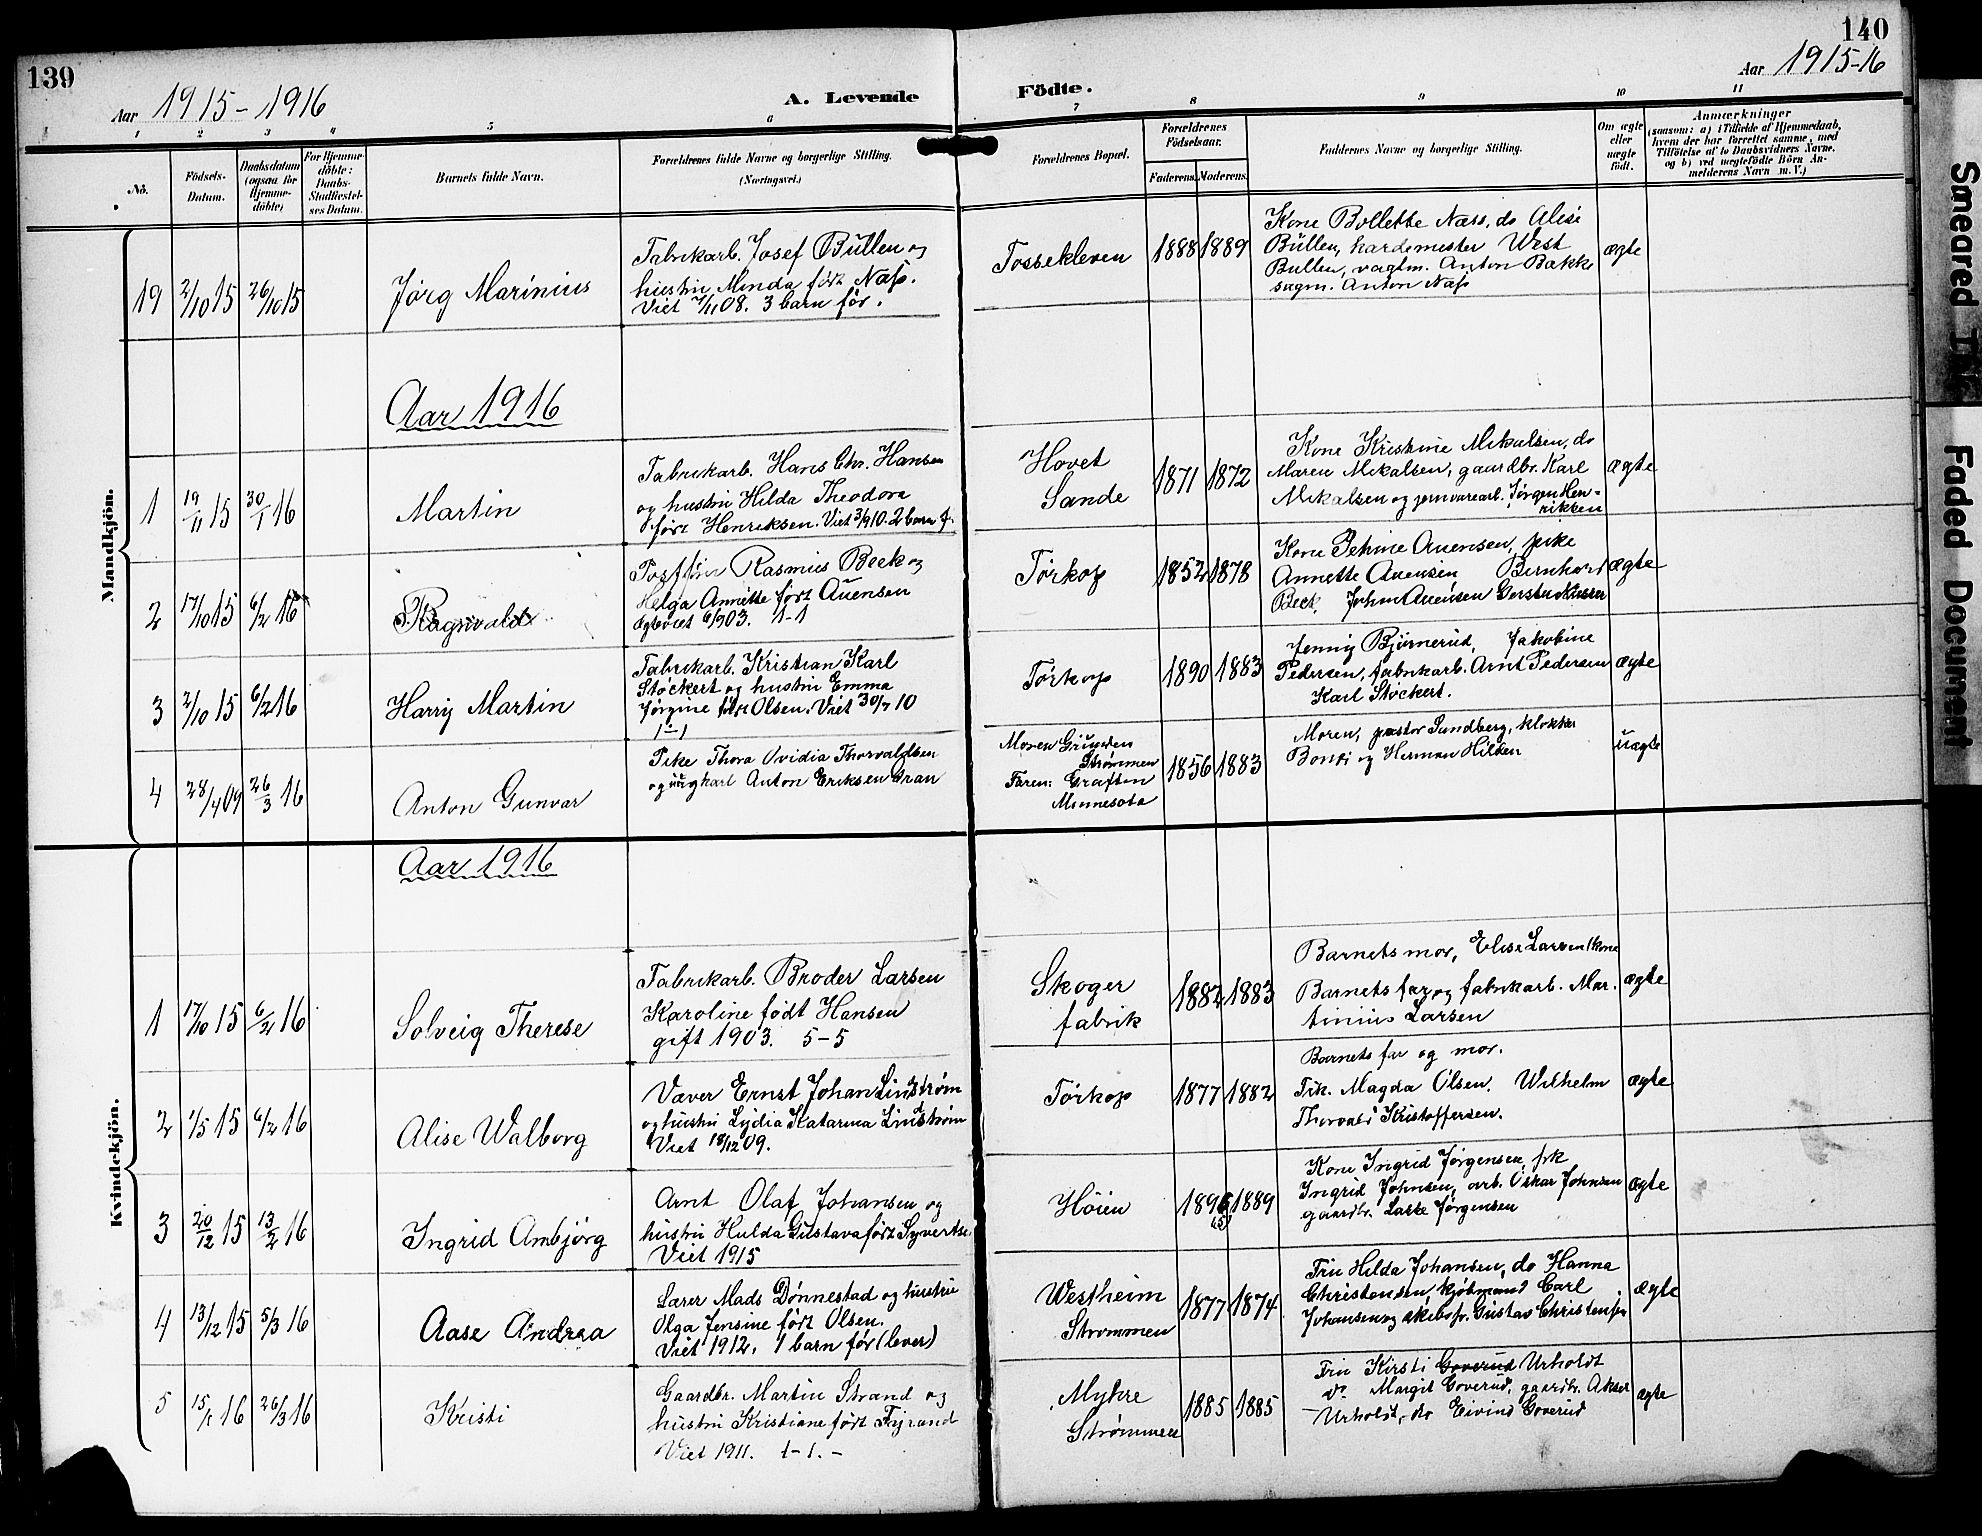 139
140
Aar 1915-1916
A. Levende
Fødte.
Aar 1915-16
1 2 3 4 5 6 7 8 9 10 11
No.
Fødsels-
Datum.
Daabsdatum
(ogsaa for
Hjemme-
døbte)
For Hjemme-
døbte:
Daabs-
Stadfæstel-
ses Datum.
Barnets fulde Navn.
Forældrenes fulde Navne og borgerlige Stilling.
(Næringsvei.)
Forældrenes Bopæl.
Forældrenes
Fødselsaar.
Faderens. Moderens.
Faddernes Navne og borgerlige Stilling.
Om ægte
eller
uægte
født.
Anmærkninger
(saasom: a) i Tilfælde af Hjemmedaab,
hvem der har forrettet samme, med
Tilføielse af to Daabsvidners Navne.
og b) ved uægtefødte Børn An-
melderens Navn m. V.)
Mandkjøn.
19 2/10 15 26/10 15
Jørg Marinius
Fabrikarb. Josef Büllen og
hustru Minda født Næss.
Viet 7/11 08. 3 barn før.
Fossekleven
1888 1889
Kone Bollette Næss, do Alise
Büllen, hardemester West
Bullen, vagtm. Anton Bakke
sagm. Anton Næss
ægte
Aar 1916
1 19/11 15 30/1 16
Martin
Fabrikarb. Hans Chr. Hansen
og hustru Hilda Theodora
født Henriksen. Viet 3/9 10. 2 barn f.
Hovet
Sande
1871 1872
Kone Kristine Mikalsen, do
Maren Mikalsen, gaardbr. Karl
Mikalsen og jernvarearb. Jørgen Hen-
riksen
ægte
2 17/10 15 6/2 16
Ragnvald
Rasmus Beck og
Helga Annette født Auensen
Ægteviet 6/9 03. 1-1
Tørkop
1852 1878
Kone Petrine Auensen, pike
Annette Auensen, Bernhard
Beck, Johan Auensen
ægte
3 2/10 15 6/2 16
Harry Martin
Fabrikarb. Kristian Karl
Støckert og hustru Emma
Jørgine født Olsen. Viet 30/7 10
1-1
Tørkop
1890 1883
Jenny Bjørnerud, Jakobine
Pedersen, fabrikarb. Arnt Pedersen
Karl Støckert.
ægte
4 28/4 09 26/3 16
Anton Gunvar
Pike Thora Ovidia Thorvaldsen
og ungkarl Anton Eriksen Gran
Moren Grunden
Strømmen
Faren: Grafton
Minnesota
1856 1883
Moren, pastor Sundberg, klokker
Bonsi og Herman Hilken
uægte
Kvindekjøn.
Aar 1916
1 17/10 15 6/2 16
Solveig Therese
Fabrikarb. Broder Larsen
Karoline født Hansen
gift 1903. 5-5
Skoger
fabrik
1882 1883
Barnets mor, Elise Larsen (kone
Barnets far og fabrikarb. Mar-
tinius Larsen
ægte
2 1/5 15 6/2 16
Alise Walborg
Væver Ernst Johan Lindstrøm
og hustru Lydia Katarina Lindstrøm
Viet 18/12 09.
Tørkop
1877 1882
Barnets far og mor.
Frk. Magda Olsen. Wilhelm
Thorvald Kristoffersen.
ægte
3 20/12 15 13/2 16
Ingrid Ambjörg
Arnt Olaf Johansen og
hustru Hulda Gustava født Syvertse
Viet 1915
Höien
1889
Kone Ingrid Jørgensen, frk
Ingrid Johnsen, arb. Oskar Johnsen
gaardbr. Lasse Jørgensen
ægte
4 13/12 15 5/3 16
Aase Andrea
Lærer Mads Dønnestad og hustru
Olga Jensine født Olsen.
Viet 1912. 1 barn før (lever)
Westheim
Strømmen
1877 1874
Fru Hilda Johansen, do Hanna
Christensen, kjøbmand Carl
Johansen og skibsfr. Gustav Christensen
ægte
5 15/1 16 26/3 16
Kristi
Gaardbr. Martin Strand og
hustru Kristiane født
Viet 1911. 1-1.-
Myhre
Strømmen
1885 1885
Fru Kirsti Goverud Urholdt
do Margit Goverud, gaardbr. Aksel
Urholdt, do Eivind Goverud
ægte
Smeared Ink
Faded Document